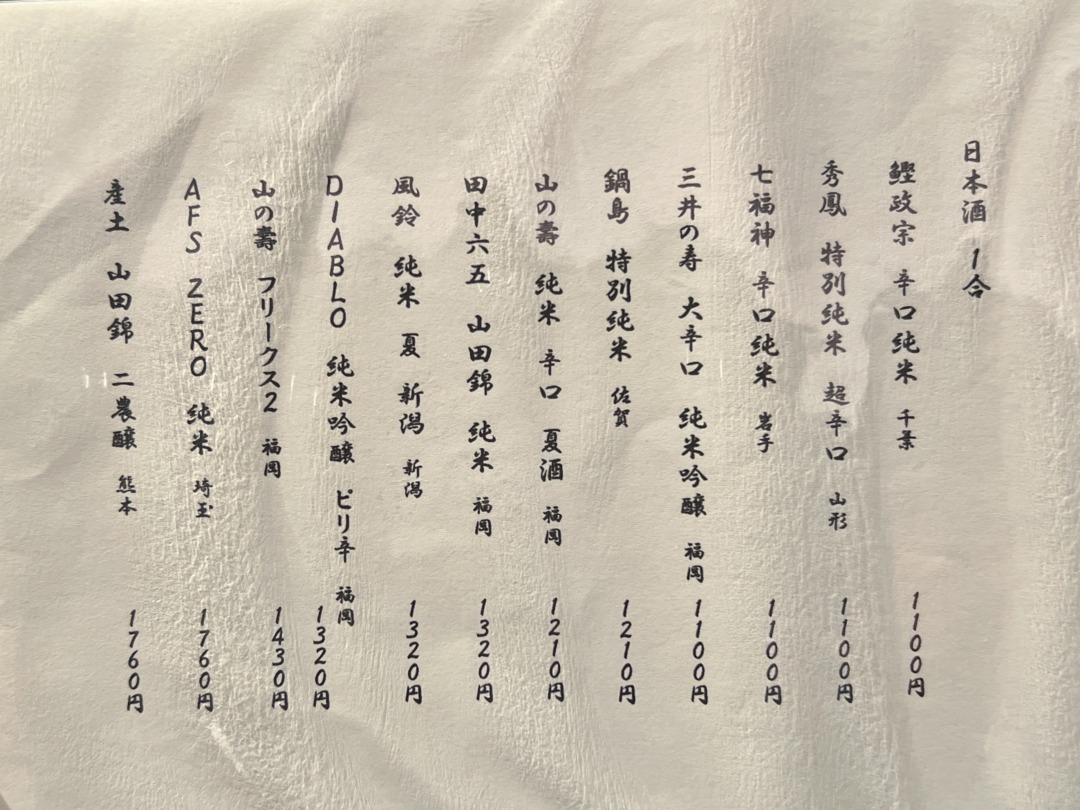 日本酒 1合
鰹政宗 辛口純米 千葉 1100円
秀鳳 特別純米 超辛口 山形 1100円
七福神 辛口純米 岩手 1100円
三井の寿 大辛口 純米吟醸 福岡 1100円
鍋島 特別純米 佐賀 1210円
山の壽 純米 辛口 夏酒 福岡 1210円
田中六五 山田錦 純米 福岡 1320円
風鈴 純米 夏 新潟 新潟 1320円
DIABLO 純米吟醸 ピリ辛 福岡 1320円
山の壽 フリークス2 福岡 1430円
AFS ZERO 純米 埼玉 1760円
産土 山田錦 二農醸 熊本 1760円